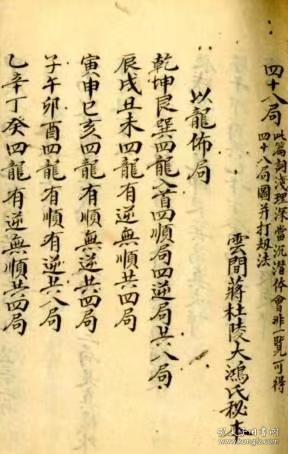 四十八局 此篇詞淺理深當沉潛体會非一覽可得
四十八局圖并打刼法
雲間蔣杜陵大鴻氏秘本
以龍佈局
乾坤艮巽四龍入首四順局四逆局共八局
辰戌丑未四龍有逆無順共四局
寅申巳亥四龍有順無逆共四局
子午卯酉四龍有順有逆共八局
乙辛丁癸四龍有逆無順共四局